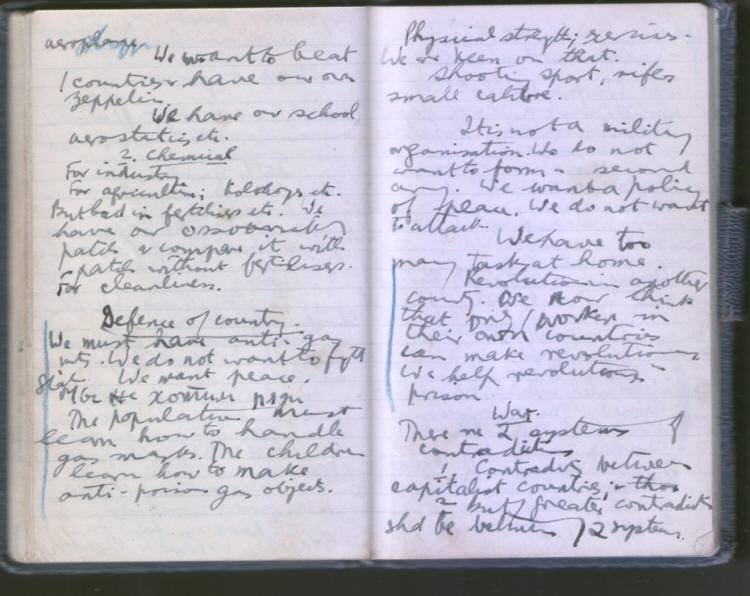 aeroplanes
We want to beat
/ countries & have our own
Zeppelin.
We have our school,
aerostatics etc.
2. Chemical
For industry
For agriculture; kolkhozs etc.
But bad in fertilisers etc. We
have our
patch & compare it with
patch without fertilisers.
For cleanliness.
Defence of country.
We must have anti-gas
. We do not want to fight
. We want peace.
Мы не хотим
The population must
learn how to handle
gas masks. The children
learn how to make
anti-poison gas objects.
Physical strength;
We are keen on that.
Shooting sport, rifles
small calibre.
It is not a military
organisation. We do not
want to form a second
army. We want a policy
of peace. We do not want
to attack.
We have too
many tasks at home.
Revolution in another
country. We now think
that only / workers in
their own countries
can make revolution
We help revolutions in
prison.
War.
There are 2 systems of
contradictions
1 Contradicts between
capitalist countries;
2 but / greater contradicts
shd be between / 2 systems.